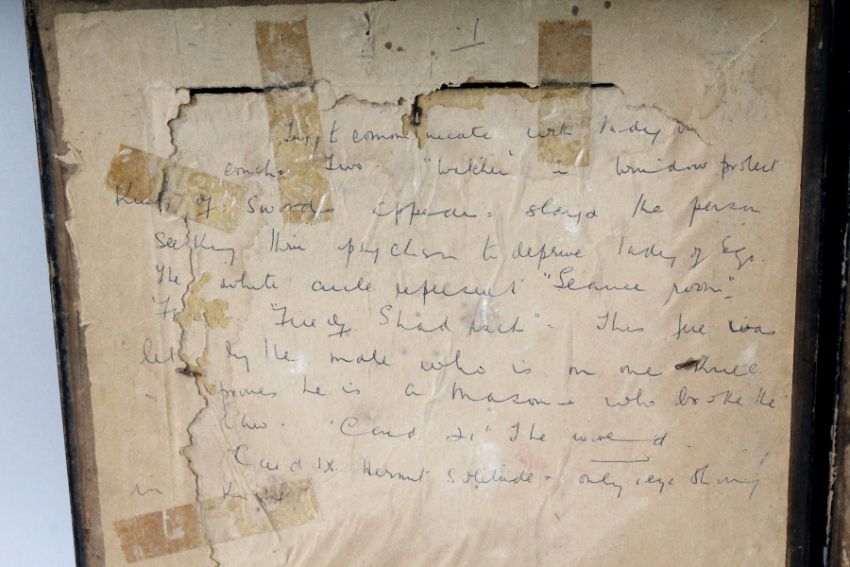 1
Try to communicate with Lady on
couch. Two "Watcher" in window protect
King of Swords appears - slays the person
seeking thru psychism to deprive Lady of Ego.
The white circle represent "Seance room".
"Fire of Shadrach" - This fire was
let by the male who is on one Knee
- proves he is a Mason - who broke the
Law. 'Card 21' The
'Card IX. Hermit Solitude - only eye
in